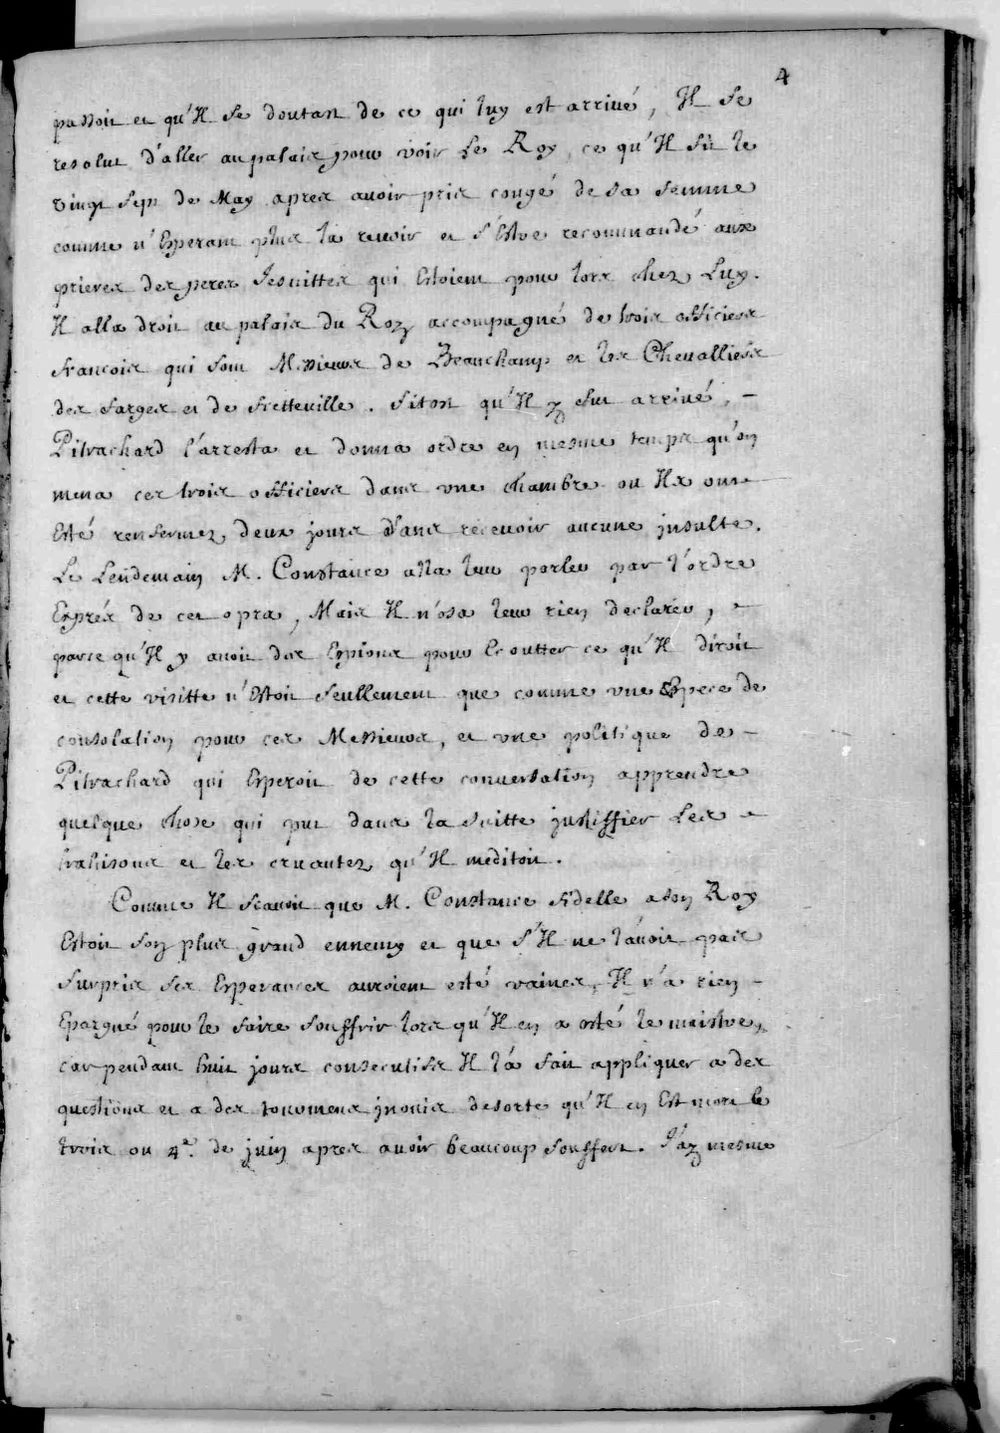 4
passoit et qu'Il se doutast de ce qui luy est arrivé, Il se
resolut d'aller au palais pour voir Le Roy, ce qu'Il fit le
vingt sept de May apres avoir pris congé de sa femme
comme n'Esperant plus la revoir et s'Estre recommandé aux
prieres des peres Jesuittes qui Estoient pour lors chez Luy.
Il alla droit au palais du Roy accompagné de trois officiers
francois qui sont Messieurs de Beauchamp et les Chevalliers
des farges et de fretteville. Sitost qu'Il y fut arrivé, -
Pitrachard l'arresta et donna ordre en mesme temps qu'on
mena ces trois officiers dans une chambre ou Ils ont
Esté renfermez deux jours sans recevoir aucune insulte.
Le Lendemain M. Constance alla leur parler par l'ordre
Exprés de cet opra, Mais Il n'osa leur rien declarer,
parce qu'Il y avoit des Espions pour Ecoutter ce qu'Il diroit
et cette visitte n'Estoit seullement que comme une Espece de
consolation pour ces Messieurs, et une politique de -
Pitrachard qui Esperoit de cette conversation apprendre
quelque chose qui put dans la suitte justiffier Les
trahisons et les cruautez qu'Il meditoit.
Comme Il scavoit que M. Constance fidelle a son Roy
Estoit son plus grand ennemy et que s'Il ne l'avoit pas
surpris ses Esperances auroient esté vaines, Il n'a rien -
Epargné pour le faire souffrir lors qu'Il en a esté le maistre,
car pendant huit jours consecutifs Il l'a fait appliquer a des
questions et a des tourmens inouis desorte qu'Il en Est mort le
trois ou 4e. de juin apres avoir beaucoup souffert. J'ay mesme